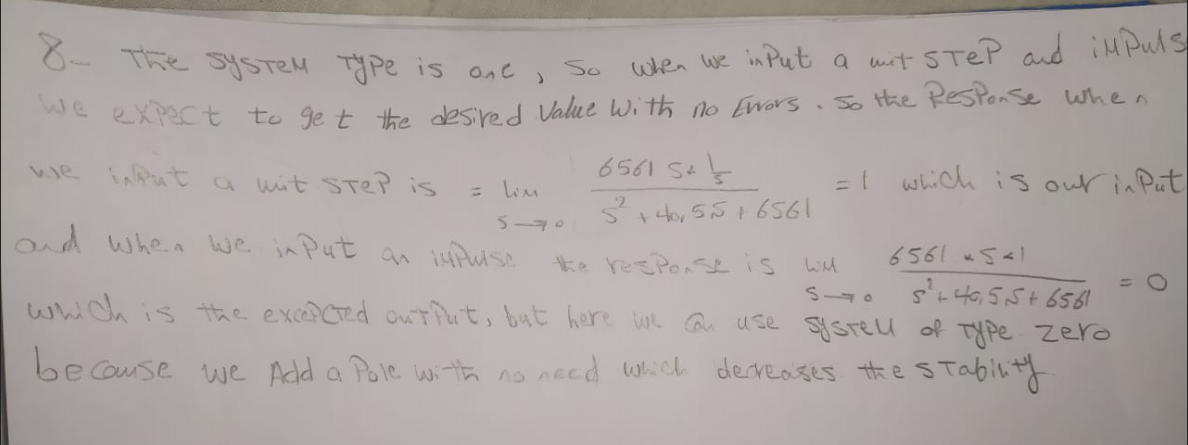 8- The system type is one, so when we input a unit step and impuls
we expect to get the desired value with no Errors. so the Response when
we input a unit step is = lim s→0 (6561 s * 1/s) / (s² + 40,5 s + 6561) = 1 which is our input
and when we input an impulse the response is lim s→0 (6561 * s * 1) / (s² + 40,5 s + 6561) = 0
which is the excepcted output, but here we can use system of type zero
because we Add a Pole with no need which decreases the stability